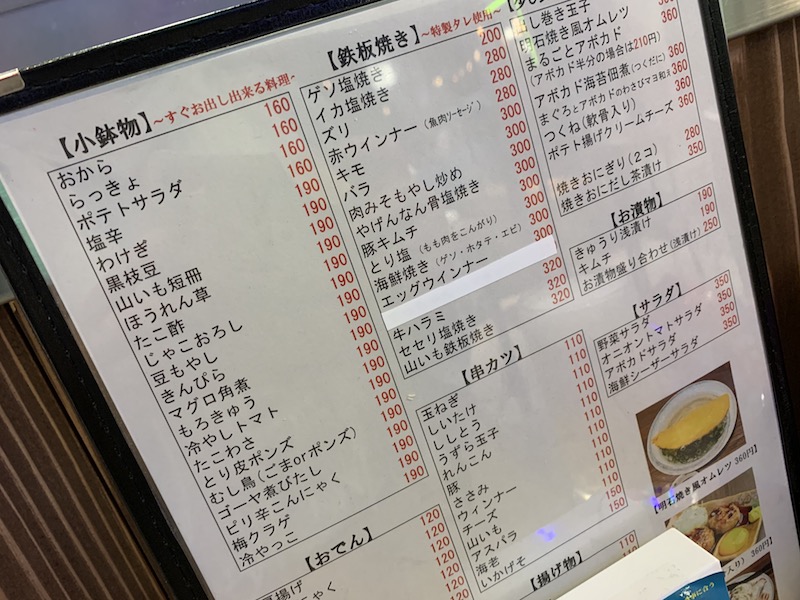 【小鉢物】~すぐお出し出来る料理~
おから 160
らっきょ 160
ポテトサラダ 160
塩辛 160
わけぎ 190
黒枝豆 190
山いも短冊 190
ほうれん草 190
たこ酢 190
じゃこおろし 190
豆もやし 190
きんぴら 190
マグロ角煮 190
もろきゅう 190
冷やしトマト 190
たこわさ 190
とり皮ポンズ 190
むし鳥(ごまorポンズ) 190
ゴーヤ煮びたし 190
ピリ辛こんにゃく 190
梅クラゲ 190
冷やっこ 190
【おでん】
揚げ 120
にゃく 120
120
120
120
【鉄板焼き】~特製タレ使用~
ゲソ塩焼き 200
イカ塩焼き 280
ズリ 280
赤ウインナー(魚肉ソーセージ) 280
キモ 300
バラ 300
肉みそもやし炒め 300
やげんなん骨塩焼き 300
豚キムチ 300
とり塩(もも肉をこんがり) 300
海鮮焼き(ゲソ・ホタテ・エビ) 300
エッグウインナー 300
牛ハラミ 320
セセリ塩焼き 320
山いも鉄板焼き 320
【串カツ】
玉ねぎ 110
しいたけ 110
ししとう 110
うずら玉子 110
れんこん 110
豚 110
ささみ 110
ウィンナー 110
チーズ 110
山いも 110
アスパラ 110
海老 150
いかげそ 150
【揚げ物】
110
出し巻き玉子
明石焼き風オムレツ
まるごとアボカド 360
(アボカド半分の場合は210円)
アボカド海苔佃煮(つくだに) 360
まぐろとアボカドのわさびマヨ和え 360
つくね(軟骨入り) 360
ポテト揚げクリームチーズ 360
焼きおにぎり(2コ) 280
焼きおにだし茶漬け 350
【お漬物】
きゅうり浅漬け 190
キムチ 190
お漬物盛り合わせ(浅漬け) 250
【サラダ】
野菜サラダ 350
オニオントマトサラダ 350
アボカドサラダ 350
海鮮シーザーサラダ 350
【明石焼き風オムレツ 360円】
入り) 360円】